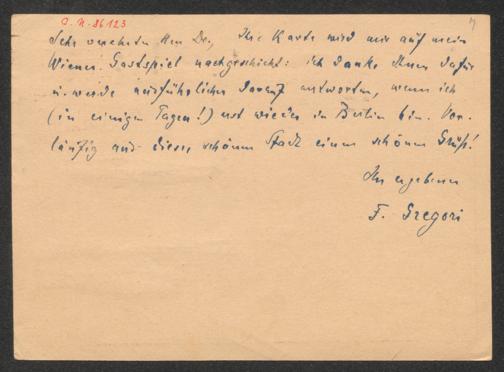 O. N. 86123
Sehr verehrter Herr Dr., Ihre Karte wird mir auf mein
Wiener Gastspiel nachgeschickt: ich danke Ihnen dafür
u. werde ausführlicher darauf antworten, wenn ich
(in einigen Tagen!) erst wieder in Berlin bin. Vor-
läufig aus dieser schönen Stadt einen schönen Gruß!
Ihr ergebener
F. Gregori